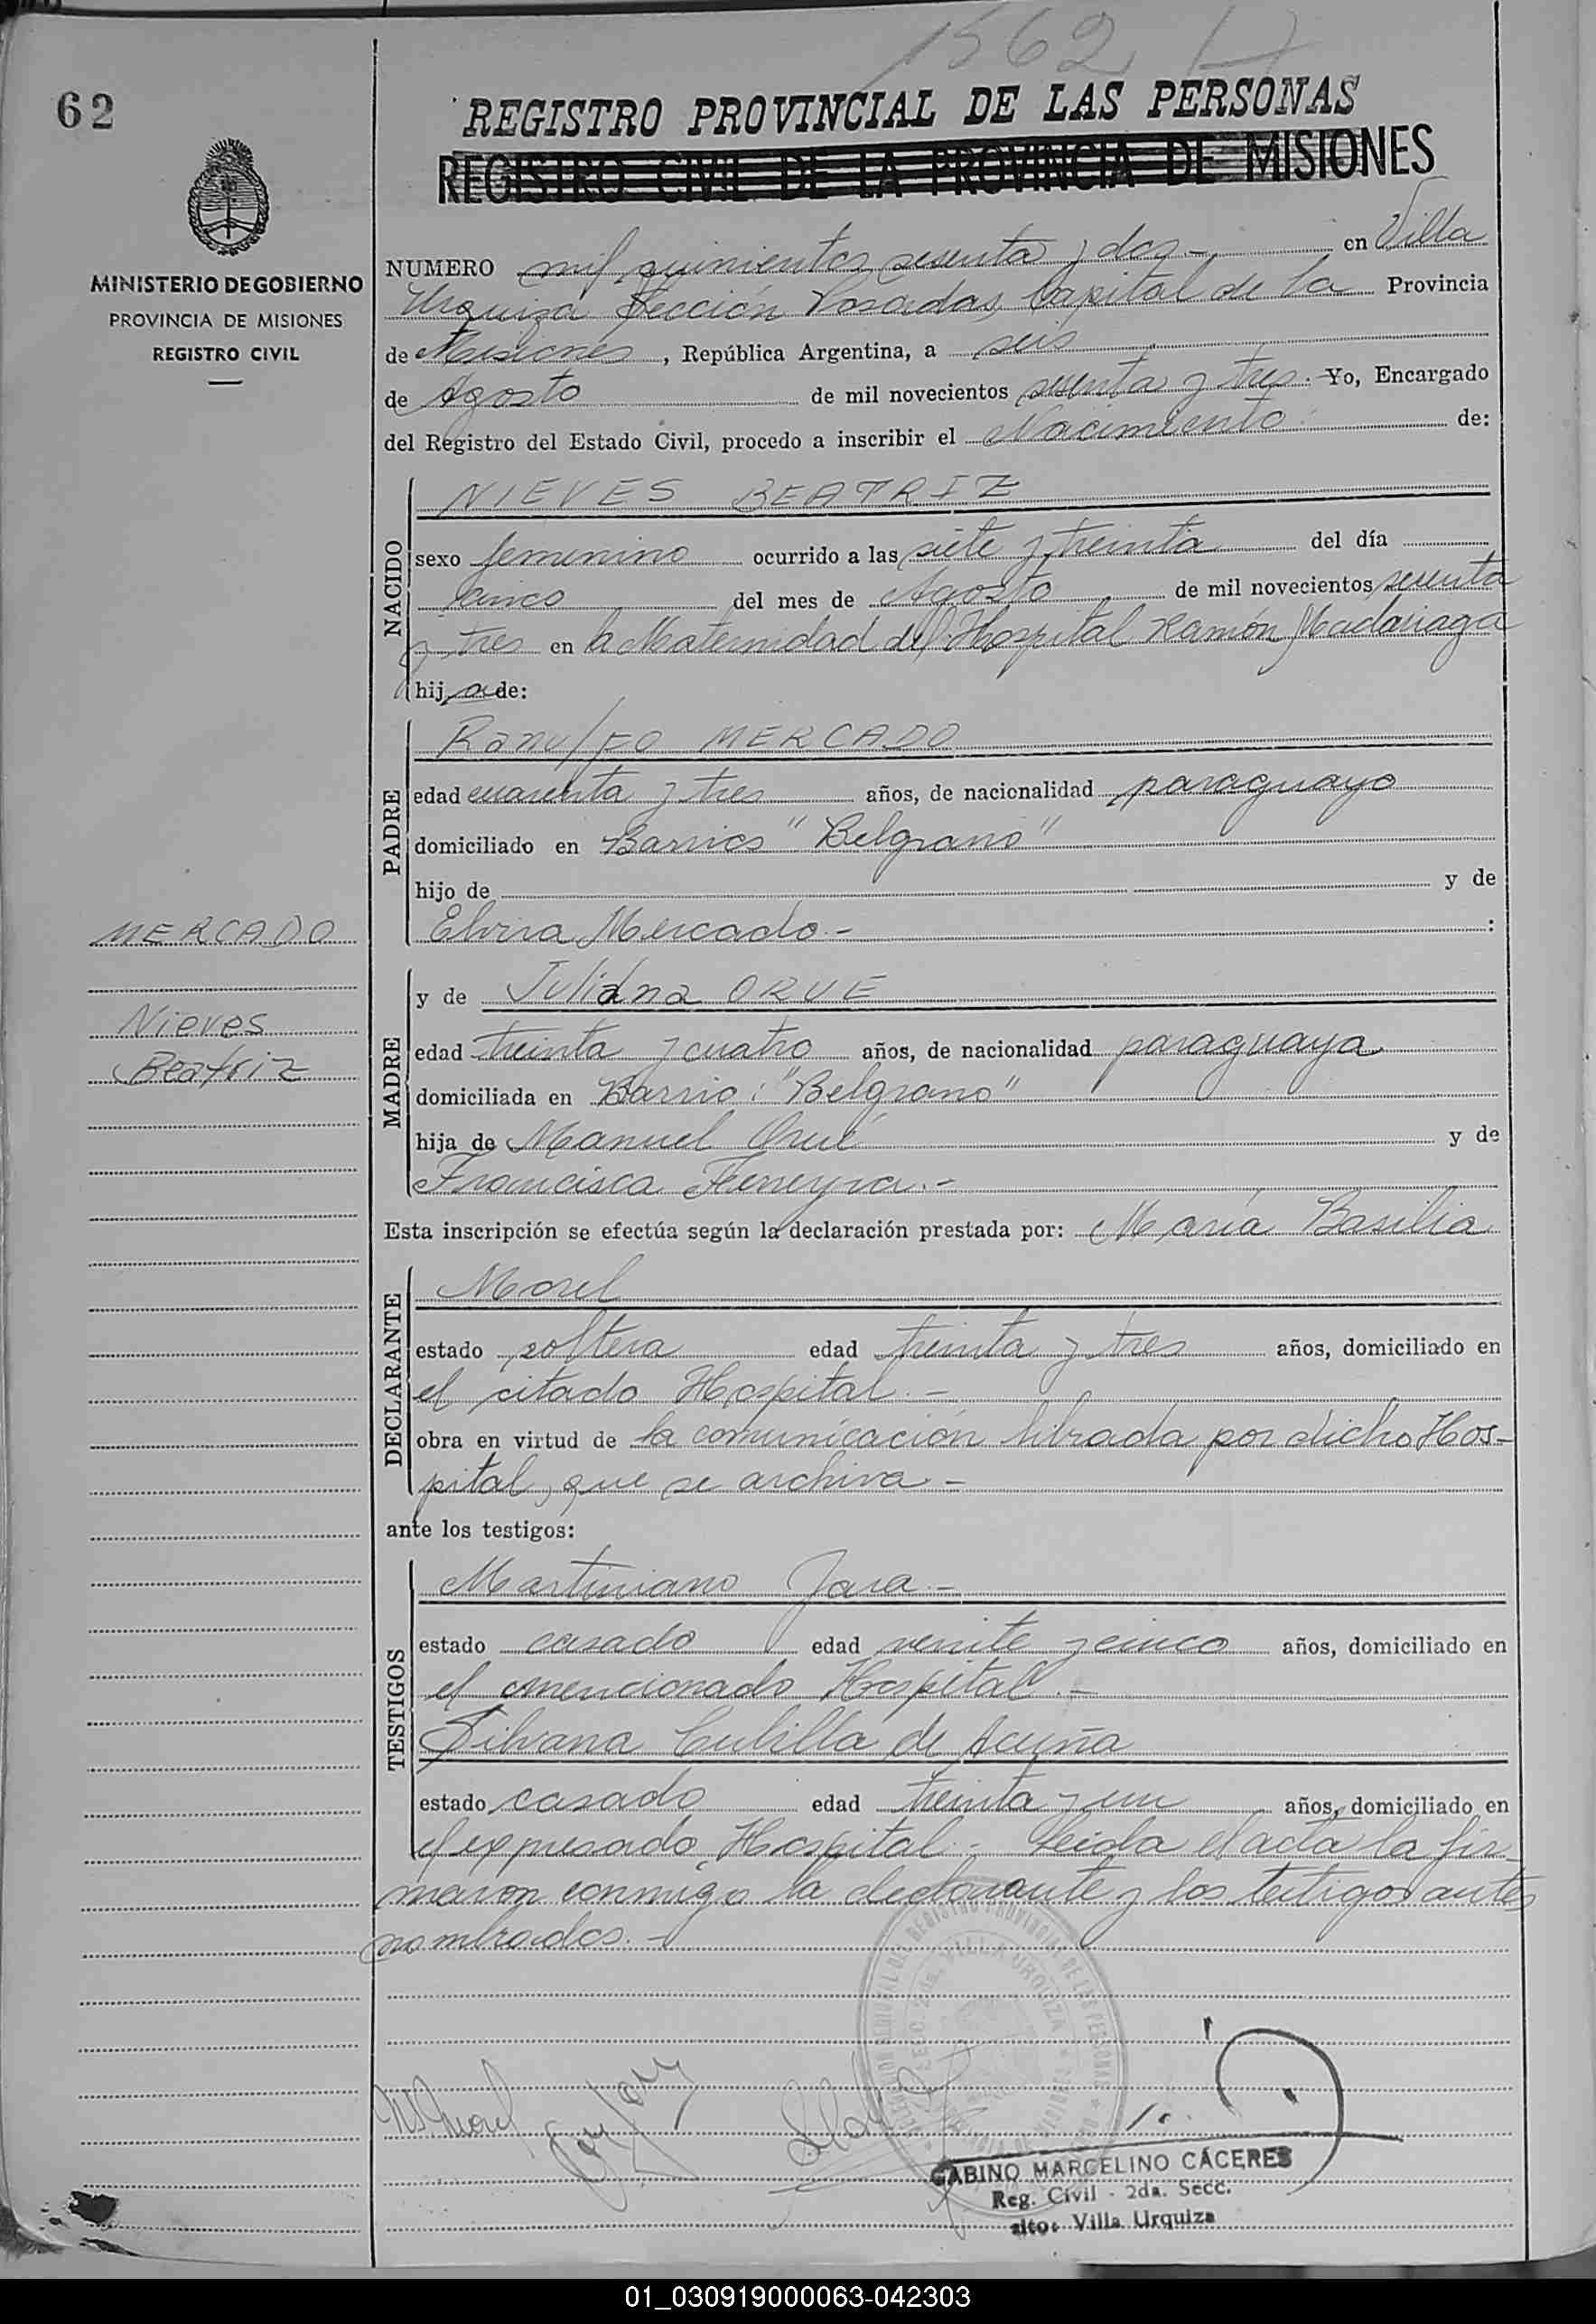 1562
62
REGISTRO PROVINCIAL DE LAS PERSONAS
REGISTRO CIVIL DE LA PROVINCIA DE MISIONES
MINISTERIO DE GOBIERNO
PROVINCIA DE MISIONES
REGISTRO CIVIL
NUMERO mil quinientos sesenta y dos.- en Villa
Urquiza Sección Posadas, Capital de la Provincia
de Misiones, República Argentina, a seis
de Agosto de mil novecientos sesenta y tres. Yo, Encargado
del Registro del Estado Civil, procedo a inscribir el Nacimiento de:
NACIDO
NIEVES BEATRIZ
sexo femenino ocurrido a las siete y treinta del día
cinco del mes de Agosto de mil novecientos sesenta
y tres en la Maternidad del Hospital Ramón Madariaga
hija de:
PADRE
Ranulfo MERCADO
edad cuarenta y tres años, de nacionalidad paraguayo
domiciliado en Barrios "Belgrano"
hijo de y de
Elvira Mercado.- :
MERCADO
Nieves
Beatriz
MADRE
y de Juliana ORUE
edad treinta y cuatro años, de nacionalidad paraguaya
domiciliada en Barrio: "Belgrano"
hija de Manuel Orué y de
Francisca Ferreyra.-
Esta inscripción se efectúa según la declaración prestada por: María Basilia
DECLARANTE
Morel
estado soltera edad treinta y tres años, domiciliado en
el citado Hospital.-
obra en virtud de la comunicación librada por dicho Hos-
pital, que se archiva.-
ante los testigos:
TESTIGOS
Martiniano Jara.-
estado casado edad veinte y cinco años, domiciliado en
el mencionado Hospital.-
Silvana Cubilla de Acuña
estado casado edad treinta y un años, domiciliado en
el expresado Hospital.- Leida el acta la fir-
maron conmigo la declarante y los testigos antes
nombrados.-
VILLA URQUIZA
GABINO MARCELINO CÁCERES
Reg. Civil - 2da. Secc.
Villa Urquiza
01_030919000063-042303